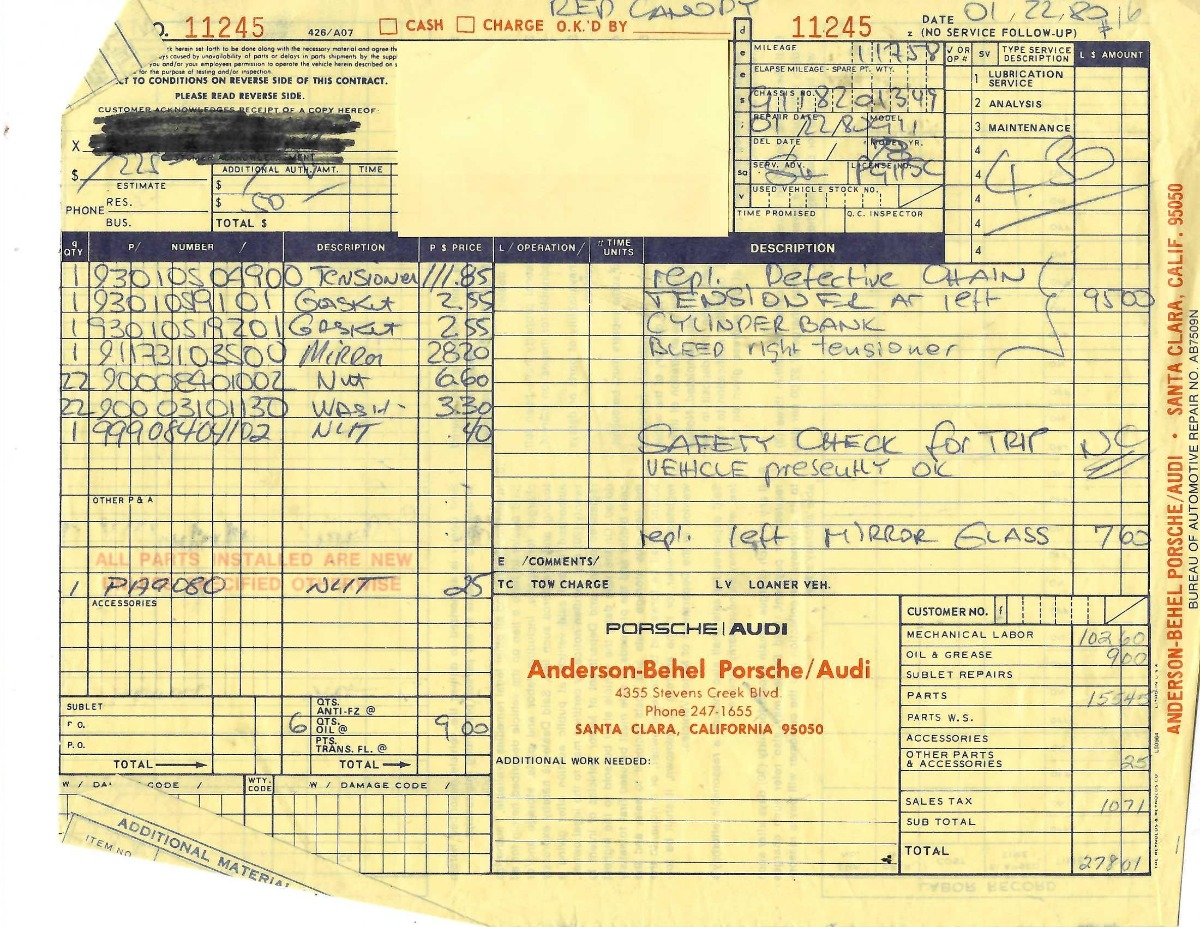 RED CANOPY
O. 11245 426/A07 CASH CHARGE O.K.'D BY 11245 DATE 01, 22, 80 #16
(NO SERVICE FOLLOW-UP)
herein set forth to be done along with the necessary material and agree
caused by unavailability of parts or delays in parts shipments by the
you and/or your employees permission to operate the vehicle herein described on
for the purpose of testing and/or inspection.
CT TO CONDITIONS ON REVERSE SIDE OF THIS CONTRACT.
PLEASE READ REVERSE SIDE.
CUSTOMER ACKNOWLEDGES RECEIPT OF A COPY HEREOF:
X
$ 225 ESTIMATE
ADDITIONAL AUTH./AMT. TIME
$
$ 50
TOTAL $
PHONE RES.
BUS.
MILEAGE 111758
ELAPSE MILEAGE - SPARE PT. WTY.
CHASSIS NO. 9118201349
REPAIR DATE 01/22/80 MODEL 911
DEL DATE / / MODEL YR. 78
SERV. ADV. LICENSE NO.
USED VEHICLE STOCK NO.
TIME PROMISED Q.C. INSPECTOR
V OR OP # SV TYPE SERVICE DESCRIPTION L $ AMOUNT
1 LUBRICATION SERVICE
2 ANALYSIS
3 MAINTENANCE
4
4 4.30
4
4
4
4
QTY P/ NUMBER / DESCRIPTION P $ PRICE
1 93010504900 TENSIONER 111.85
1 9301059101 GASKET 2.55
1 93010519201 GASKET 2.55
1 91173103500 MIRROR 2820
22 90008401002 NUT 6.60
22 90003101130 WASH- 3.30
1 99908404102 NUT .40
OTHER P & A
ALL PARTS INSTALLED ARE NEW
1 PA9080 NUT 25
ACCESSORIES
SUBLET
P.O.
P.O.
TOTAL
QTS. ANTI-FZ @
6 QTS. OIL @ 9 00
PTS. TRANS. FL. @
TOTAL
CODE / WTY. CODE W / DAMAGE CODE /
ADDITIONAL MATERIAL
ITEM NO.
L / OPERATION / TIME UNITS DESCRIPTION
repl. Defective CHAIN
TENSIONER AT left 9500
CYLINDER BANK
BLEED right tensioner
SAFETY CHECK for TRIP NC
VEHICLE presently OK
repl. left MIRROR GLASS 760
E /COMMENTS/
TC TOW CHARGE LV LOANER VEH.
PORSCHE | AUDI
Anderson-Behel Porsche/Audi
4355 Stevens Creek Blvd.
Phone 247-1655
SANTA CLARA, CALIFORNIA 95050
ADDITIONAL WORK NEEDED:
CUSTOMER NO.
MECHANICAL LABOR 10260
OIL & GREASE 900
SUBLET REPAIRS
PARTS 15545
PARTS W.S.
ACCESSORIES
OTHER PARTS & ACCESSORIES 25
SALES TAX 1071
SUB TOTAL
TOTAL 27801
LABOR RECORD
ANDERSON-BEHEL PORSCHE/AUDI • SANTA CLARA, CALIF. 95050
BUREAU OF AUTOMOTIVE REPAIR NO. AB7509N